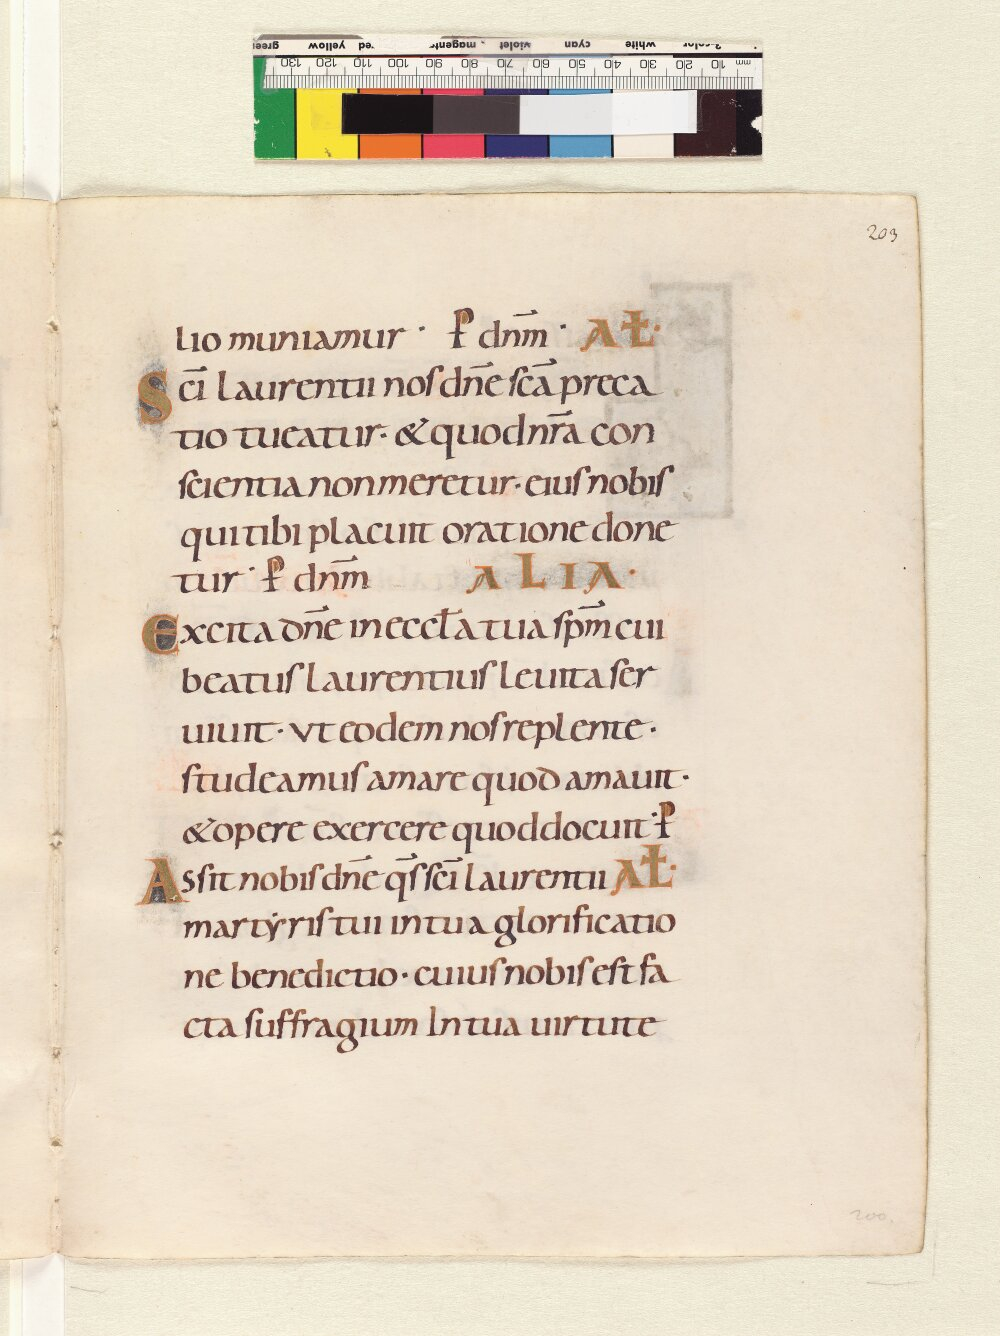 203
lio muniamur · P̄ dnm̄ · AŁ·
Scī laurentii nos dn̄e sc̄a preca
tio tueatur· & quod nr̄a con
scientia non meretur· eius nobis
qui tibi placuit oratione done
tur· P̄ dnm̄ ALIA·
Excita dn̄e in eccła tua sp̄m cui
beatus laurentius leuita ser
uiuit· vt eodem nos replente·
studeamus amare quod amauit·
& opere exercere quod docuit· P̄
Assit nobis dn̄e q̄s scī laurentii AŁ·
martẏris tui in tua glorificatio
ne benedictio· cuius nobis est fa
cta suffragium In tua uirtute
200